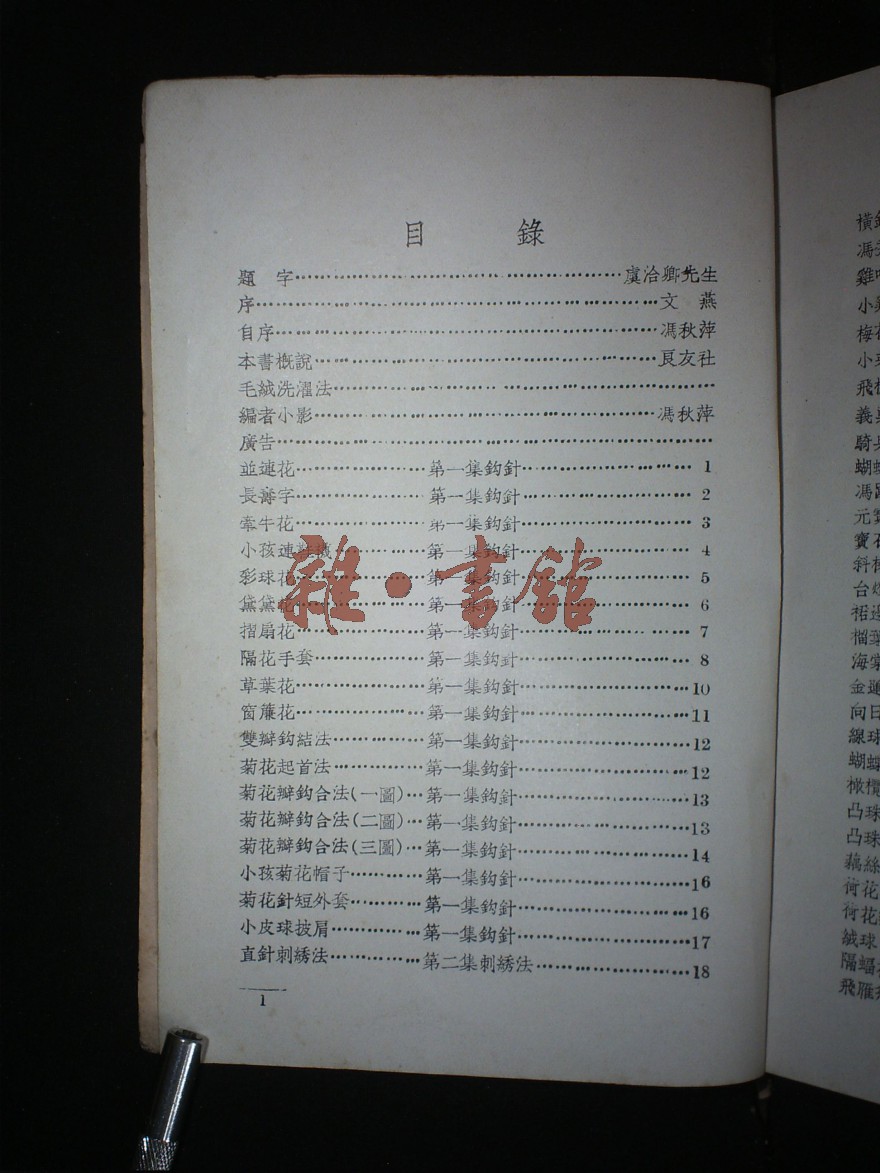 目 錄
題 字………虞洽卿先生
序………文 燕
自序………馮秋萍
本書概說………良友社
毛絨洗濯法………
編者小影………馮秋萍
廣告………
並蓮花………第一集鈎針………1
長壽字………第一集鈎針………2
牽牛花………第一集鈎針………3
小孩連鞋襪………第一集鈎針………4
彩球花………第一集鈎針………5
黛黛花………第一集鈎針………6
摺扇花………第一集鈎針………7
隔花手套………第一集鈎針………8
草葉花………第一集鈎針………10
窗簾花………第一集鈎針………11
雙瓣鈎結法………第一集鈎針………12
菊花起首法………第一集鈎針………12
菊花瓣鈎合法(一圖)…第一集鈎針………13
菊花瓣鈎合法(二圖)…第一集鈎針………13
菊花瓣鈎合法(三圖)…第一集鈎針………14
小孩菊花帽子………第一集鈎針………16
菊花針短外套………第一集鈎針………16
小皮球披肩………第一集鈎針………17
直針刺綉法………第二集刺綉法………18
1
雜·書館
橫
馮
雞
小
梅
小
飛
義
騎
蝴
馮
元
寶石
斜
台
榴
海棠
向日
線球
蝴蝶
橄欖
凸珠
凸珠
藕絲
荷花
荷花
絨球
隔蝠
飛雁